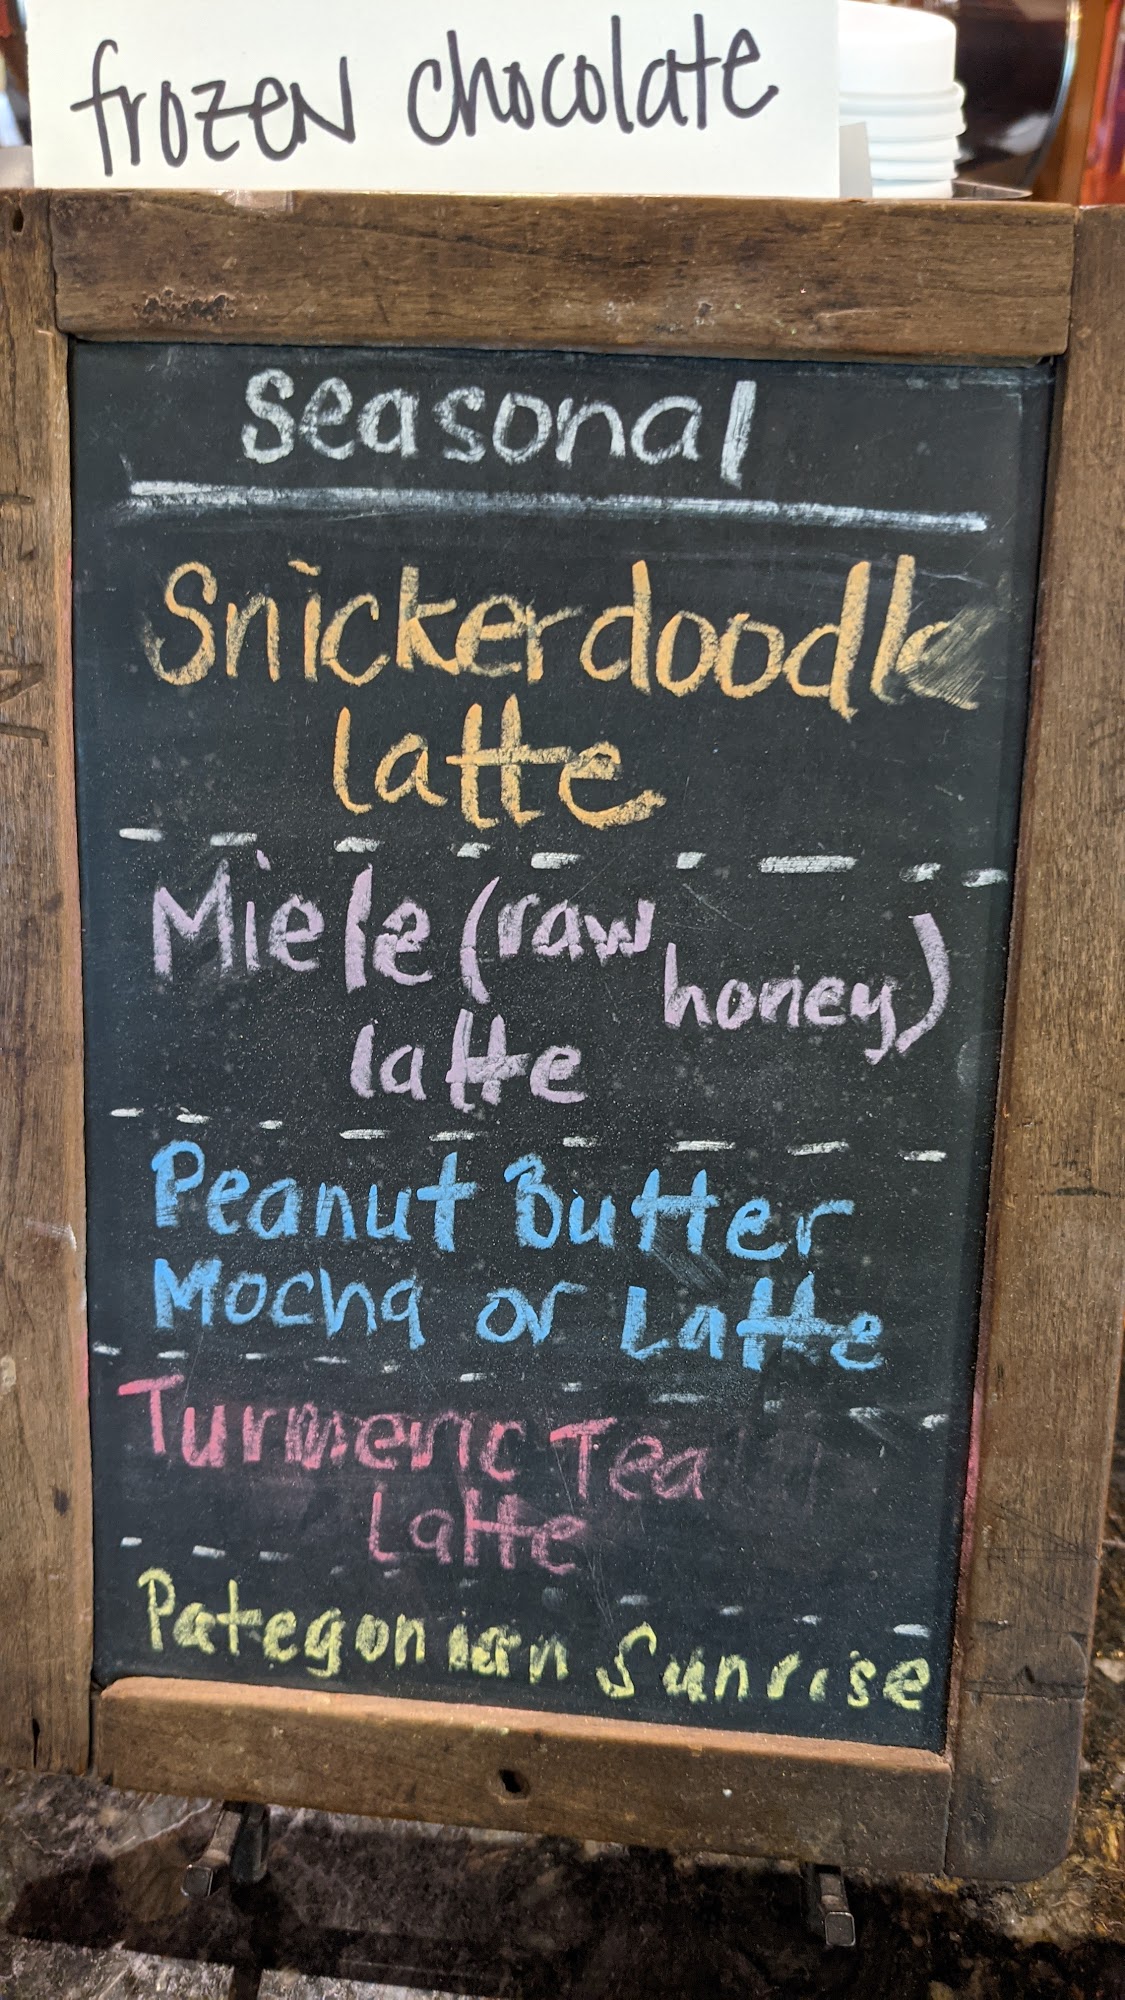 frozen chocolate
seasonal
Snickerdoodle
latte
Miele (raw honey)
latte
Peanut Butter
Mocha or Latte
Turmeric Tea
Latte
Pategonian Sunrise